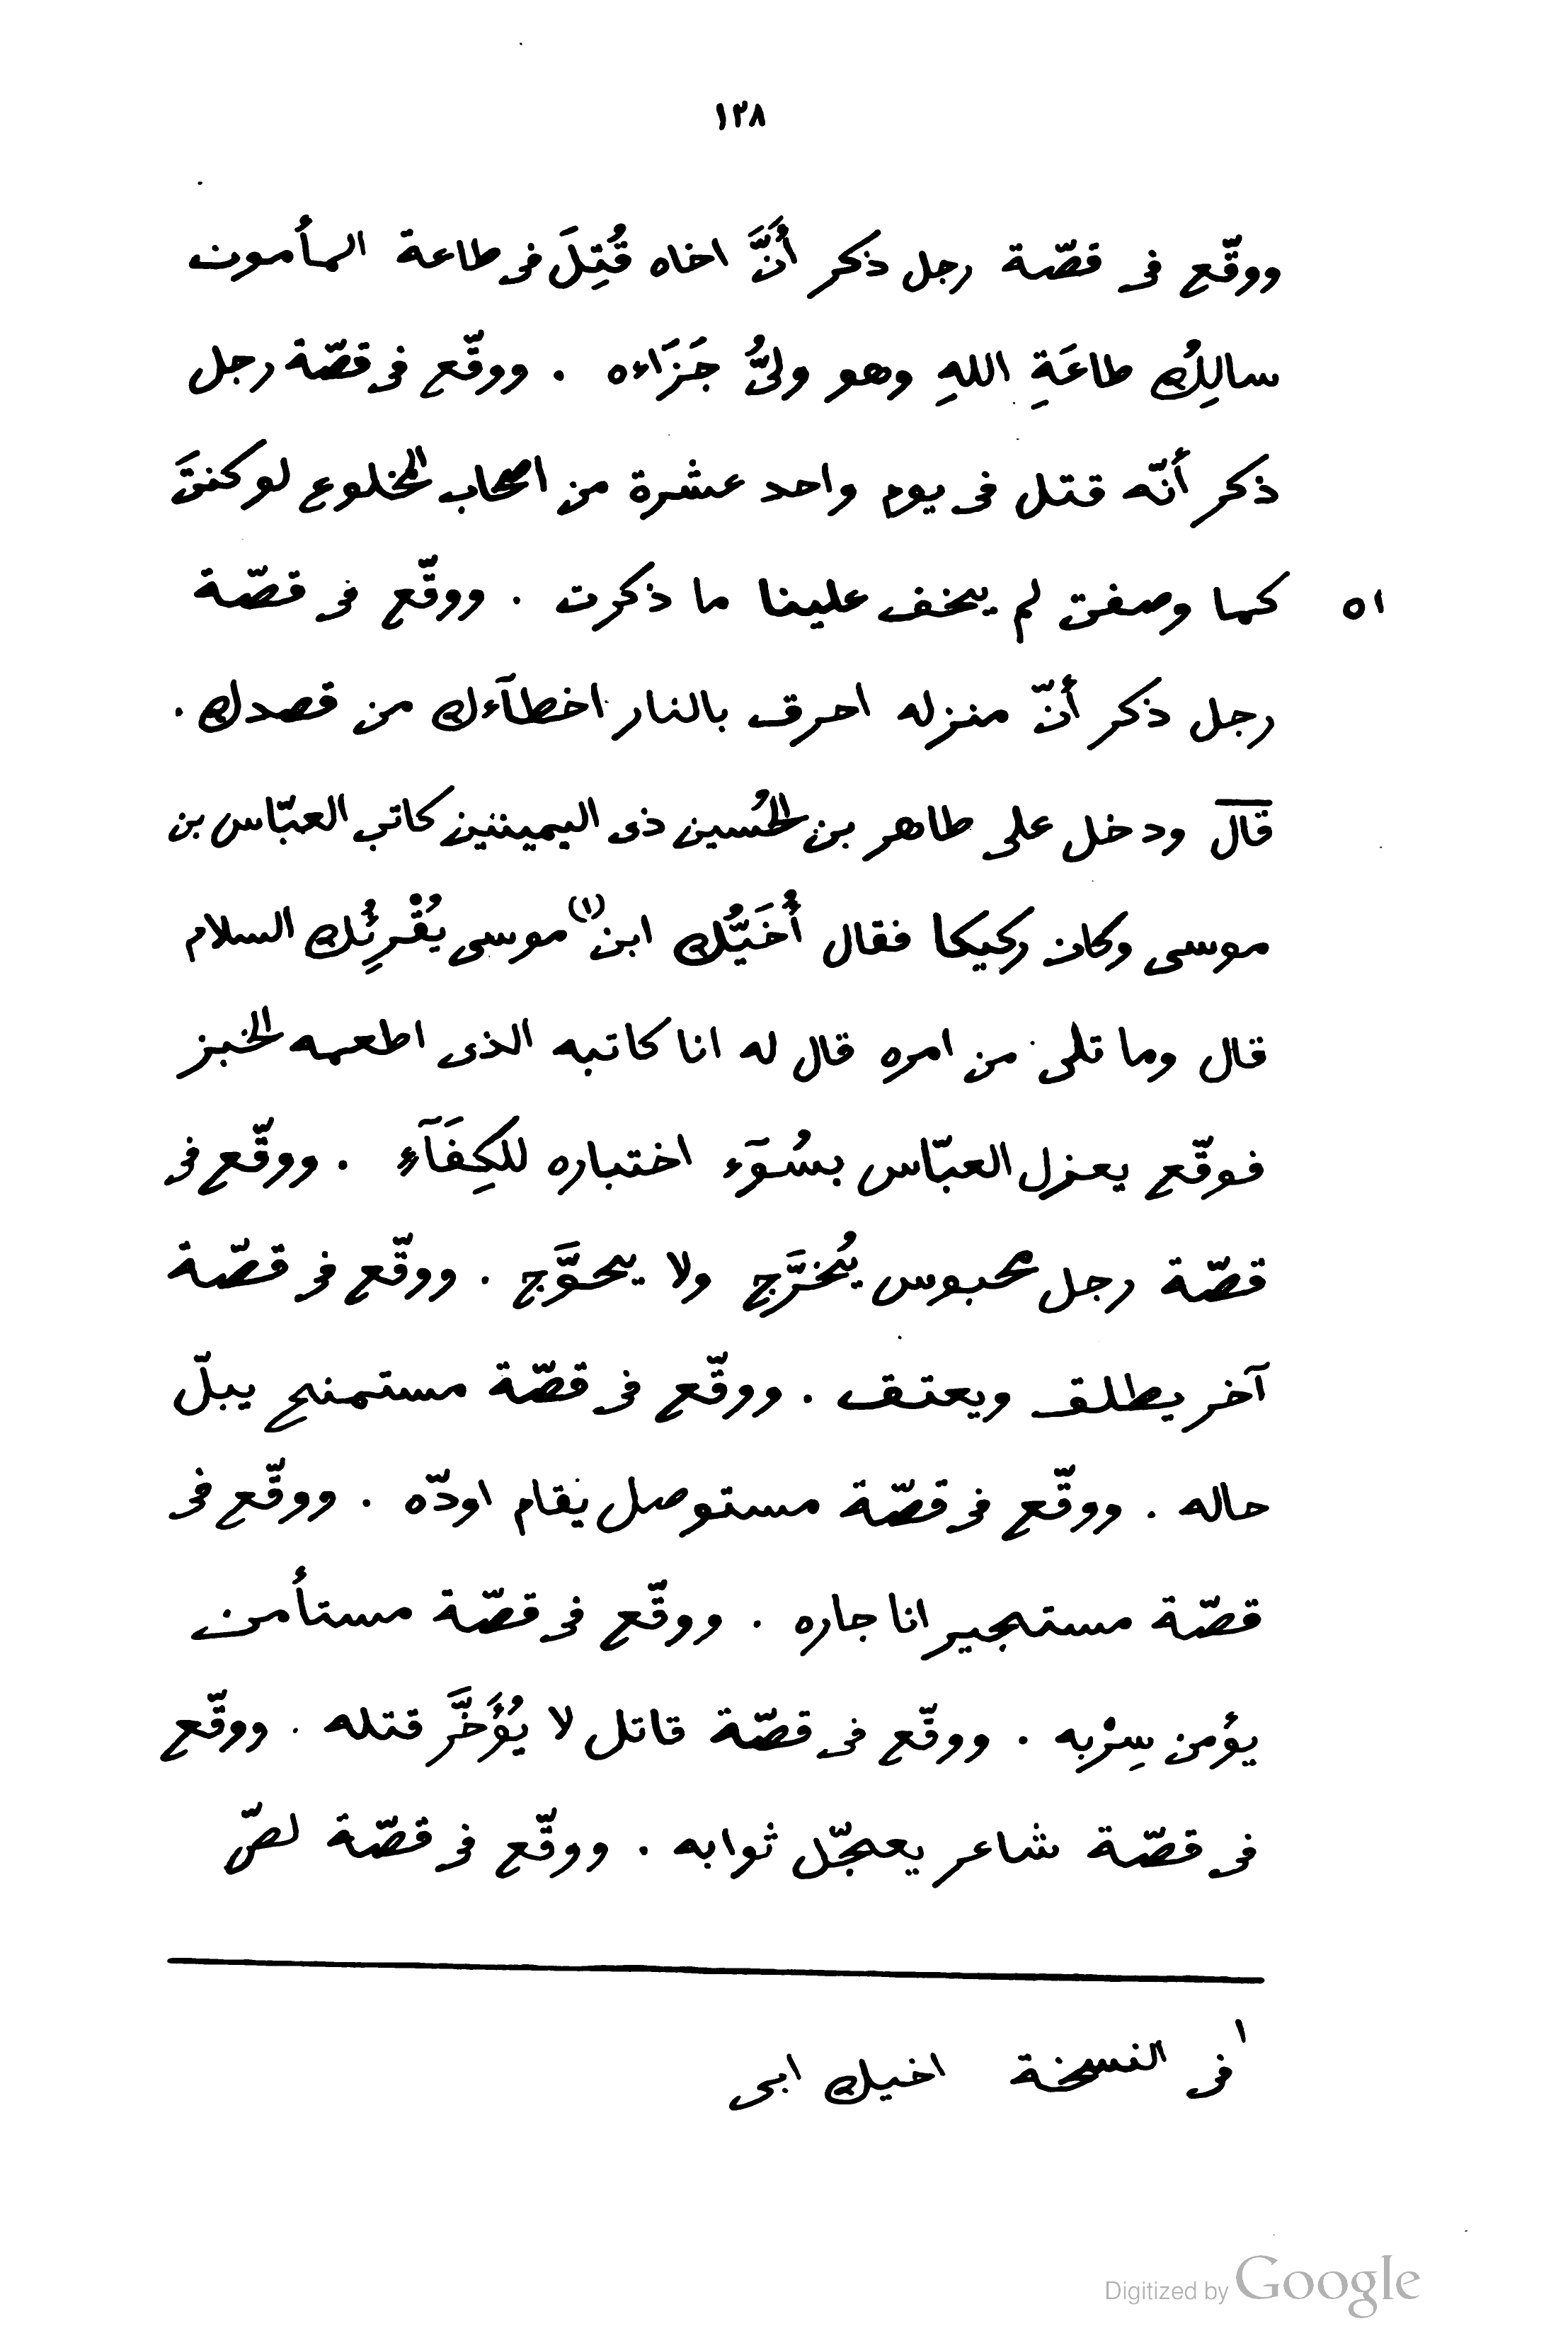 ١٢٨
ووقّع فى قصّة رجل ذكر أَنَّ اخاه قُتِلَ فى طاعة المأمون
سالِكُ طاعَةِ اللهِ وهو ولىُّ جَزَاءه . ووقّع فى قصّة رجل
ذكر أنّه قتل فى يوم واحد عشرة من اصحاب المخلوع لو كنتَ
٥١ كما وصفت لم يخف علينا ما ذكرت . ووقّع فى قصّة
رجل ذكر أنّ منزله احرق بالنار اخطآءك من قصدك .
قال ودخل على طاهر بن الحُسين ذى اليمينين كاتب العبّاس بن
موسى وكان ركيكا فقال أُخَيُّك ابن (١) موسى يُقْرِئُك السلام
قال وما تلى من امره قال له انا كاتبه الذى اطعمه الخبز
فوقّع يعزل العبّاس بسُوٓء اختباره للكِفَآءِ . ووقّع فى
قصّة رجل محبوس يُخرَّج ولا يحوَّج . ووقّع فى قصّة
آخر يطلق ويعتق . ووقّع فى قصّة مستمنح يبلّ
حاله . ووقّع فى قصّة مستوصل يقام اودّه . ووقّع فى
قصّة مستجير انا جاره . ووقّع فى قصّة مستأمن
يؤمن سِرْبه . ووقّع فى قصّة قاتل لا يُؤَخَّر قتله . ووقّع
فى قصّة شاعر يعجّل ثوابه . ووقّع فى قصّة لصّ
١ فى النسخة اخيك ابى
Digitized by Google